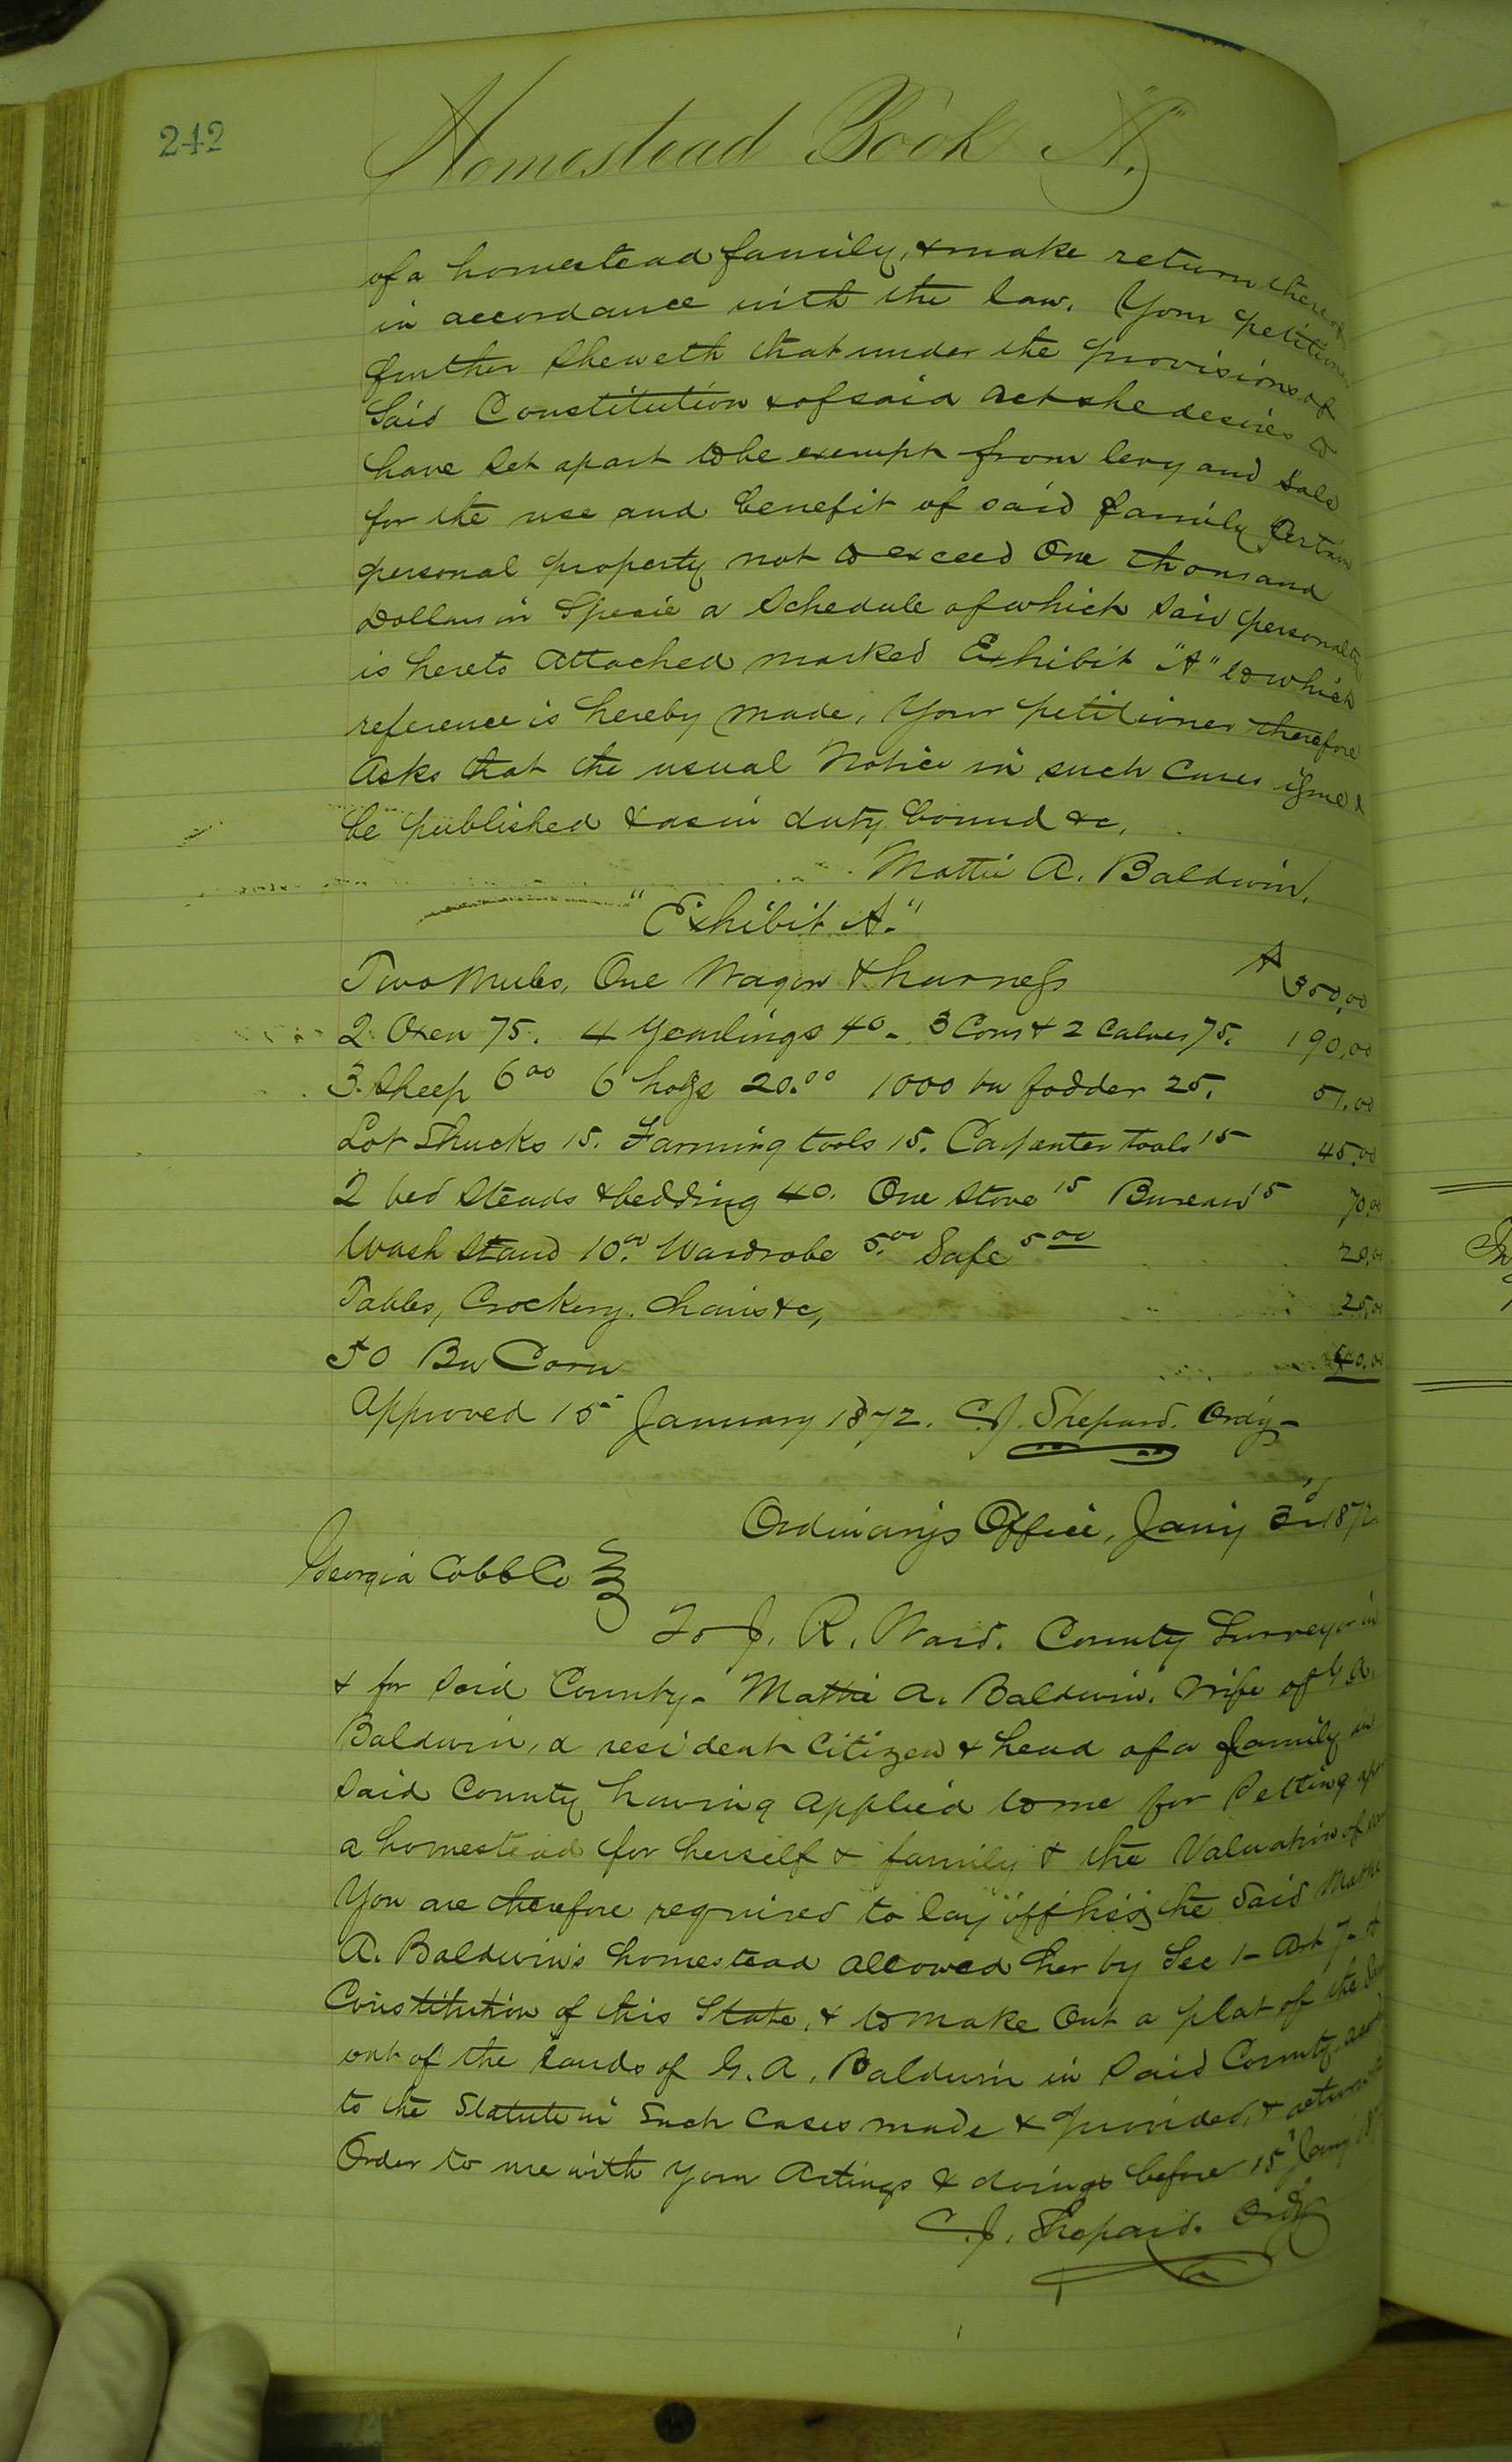 242
Homestead Book "A."
of a homestead family, & make return thereof
in accordance with the law. Your petitioner
further sheweth that under the provisions of
Said Constitution & of said act she desires to
have set apart to be exempt from levy and sale
for the use and benefit of said family certain
personal property not to exceed One thousand
Dollars in Specie a Schedule of which said personalty
is hereto attached marked Exhibit "A" to which
reference is hereby made. Your petitioner therefore
Asks that the usual Notice in such Cases
be published & as in duty bound &c.
Mattie A. Baldwin.
"Exhibit A."
Two Mules, One Wagon & harness $ 350.00
2 Oxen 75. 4 Yearlings 40. 3 Cows & 2 Calves 75. 190.00
3 Sheep 6.00 6 hogs 20.00 1000 bu fodder 25. 51.00
Lot Shucks 15. Farming tools 15. Carpenter tools 15 45.00
2 bed Steads & bedding 40. One Stove 15 Bureau 15 70.00
Wash Stand 10.00 Wardrobe 5.00 Safe 5.00 20.00
Tables, Crockery. Chairs &c, 25.00
50 Bu Corn 40.00
Approved 15 January 1872. C.J. Shepard. Ordy
Ordinarys Office, Jany 3rd 1872.
Georgia Cobb Co
To J. R. Ward. County Surveyor in
& for Said County. Mattie A. Baldwin. Wife of G. A.
Baldwin, a resident Citizen & head of a family in
Said County having applied to me for Setting
a homestead for herself & family & the Valuation of
You are therefore required to lay off the Said Mattie
A. Baldwin's homestead allowed her by Sec 1 - Art 7 -
Constitution of this State, & to make Out a plat of the
out of the lands of G. A. Baldwin in Said County
to the Statute in Such Cases made & provided, & return
Order to me with your Actings & doings before 15 Jany
C.J. Shepard. Ordy